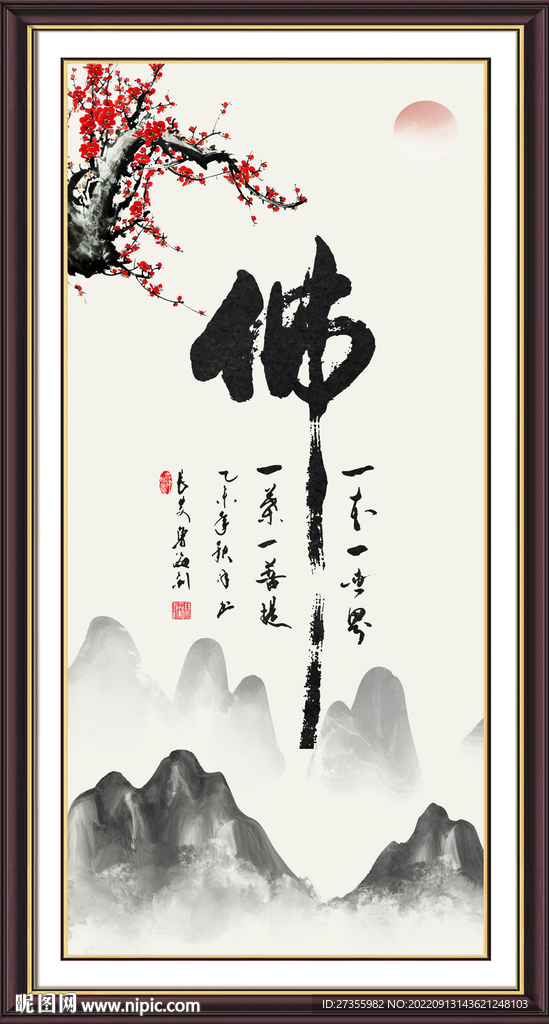 佛
一花一世界
一葉一菩提
乙未年秋月书
昵图网 www.nipic.com
ID:27355982 NO:20220913143621248103